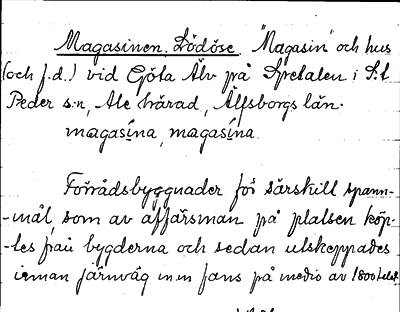 Magasinen, Lödöse. "Magasin" och hus
(och f.d.) vid Göta Älv på Spetalen i S:t
Peder s:n, Ale härad, Älfsborgs län.
magasína, magasína.
Förrådsbyggnader för särskilt spann-
-mål, som av affärsmän på platsen köp-
-tes från bygderna och sedan utskeppades
innan järnväg m.m fans på medio av 1800 talet.